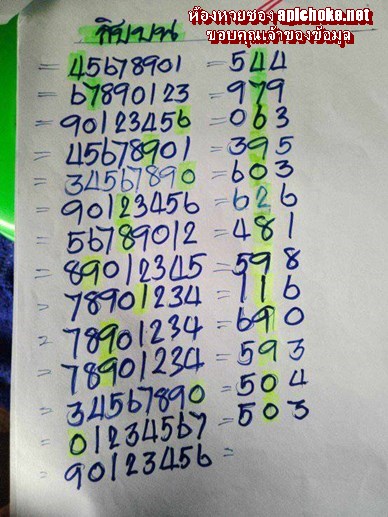 ห้องหวยซอง apichoke.net
ขอบคุณเจ้าของข้อมูล
สิบบน
= 45678901 = 544
= 67890123 = 979
= 90123456 = 063
= 45678901 = 395
= 34567890 = 603
= 90123456 = 626
= 56789012 = 481
= 89012345 = 598
= 78901234 = 116
= 78901234 = 690
= 78901234 = 593
= 34567890 = 504
= 01234567 = 503
= 90123456 =